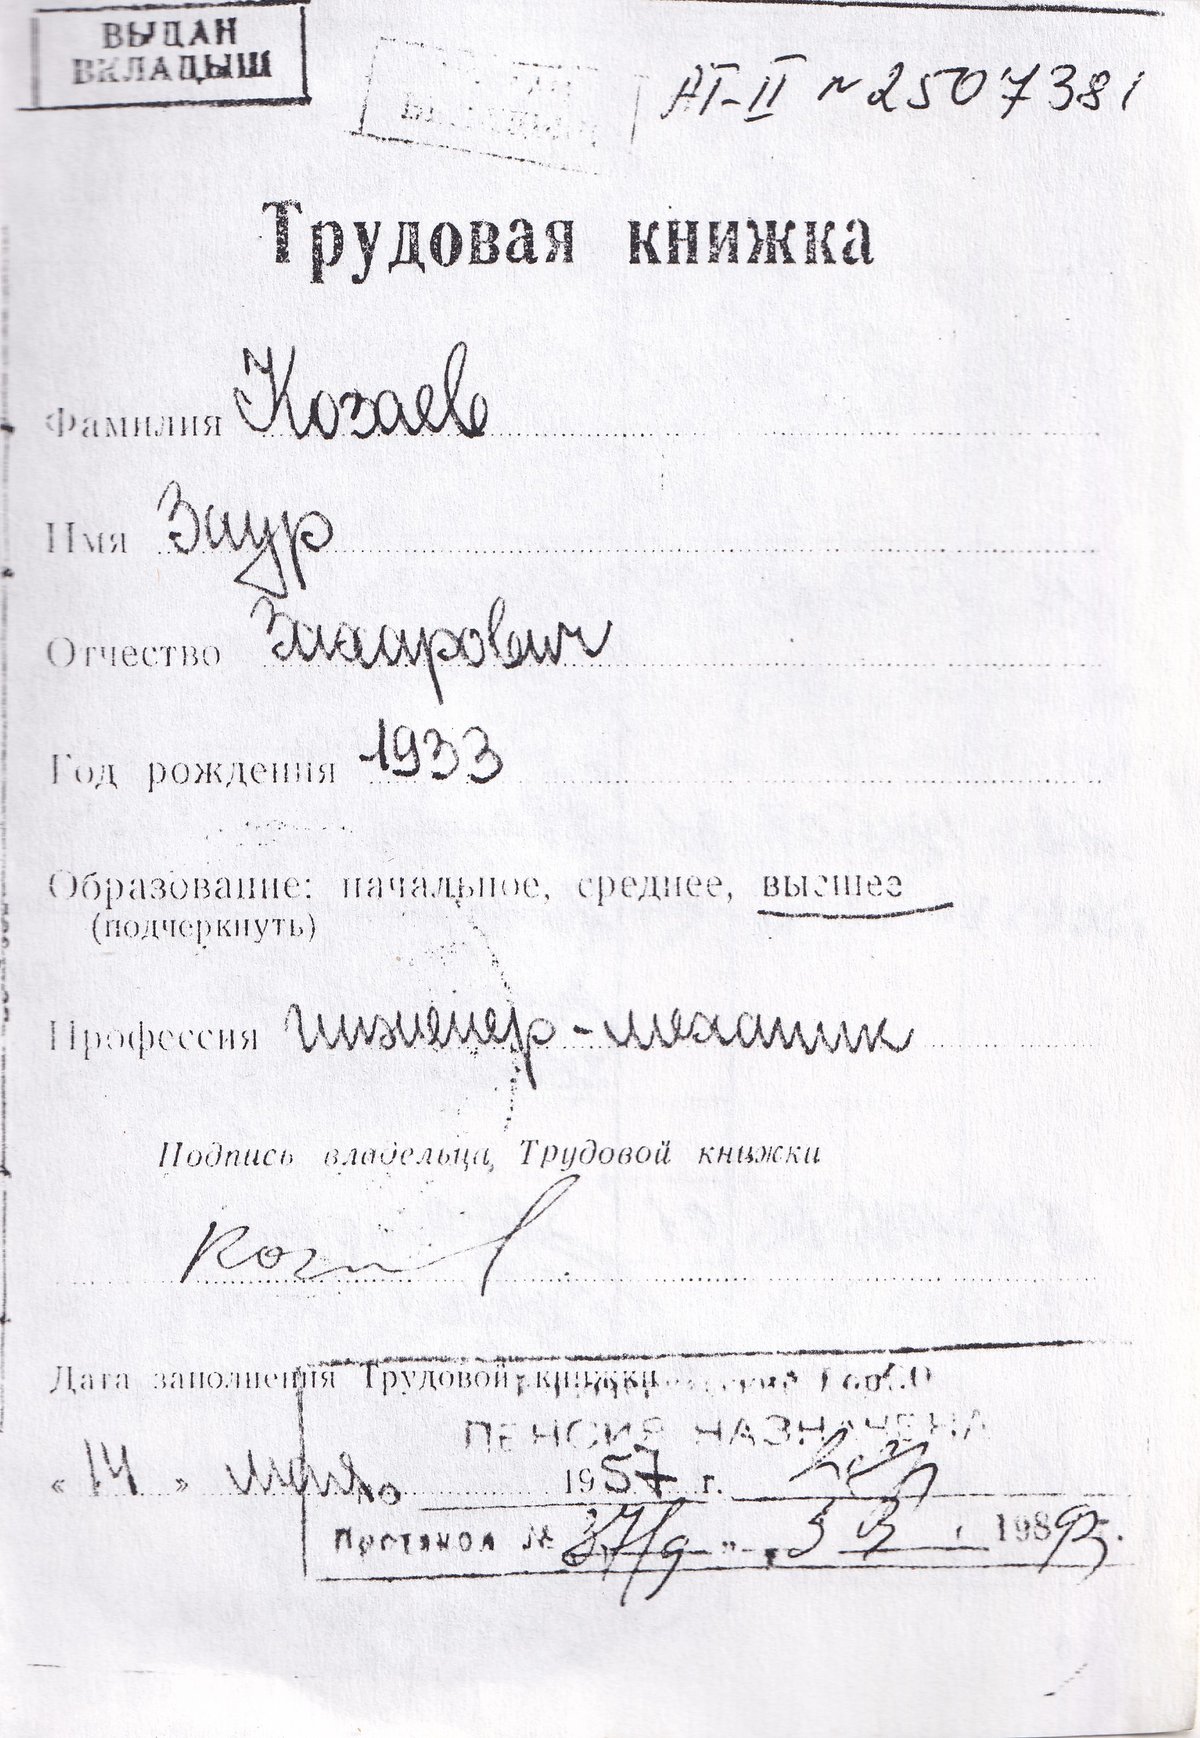 ВЫДАН
ВКЛАДЫШ
АТ-II № 2507381
Трудовая книжка
Фамилия Козаев
Имя Заур
Отчество Захарович
Год рождения 1933
Образование: начальное, среднее, высшее
(подчеркнуть)
Профессия инженер-механик
Подпись владельца Трудовой книжки
Дата заполнения Трудовой книжки
ПЕНСИЯ НАЗНАЧЕНА
« 14 » мая 1957 г.
по
Протокол №